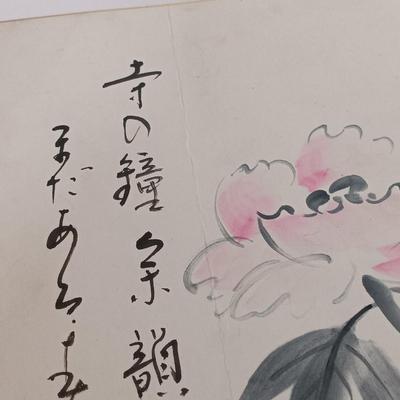 寺の鐘余韻
まだある